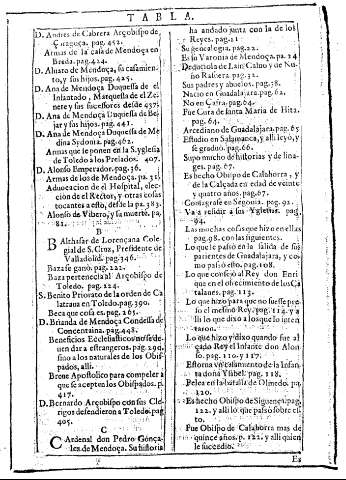 TABLA.
D. Andres de Cabrera Arçobispo de
Çaragoça. pag. 452.
Armas de la casa de Mendoça en
Breda. pag. 424.
D. Aluaro de Mendoça, su casamiento,
y sus hijos. pag. 425.
D. Ana de Mendoça Duquesa del
Infantado, Marquesa del Zenete
y sus sucessores desde 437.
D. Ana de Mendoça Duquesa de Bejar
y sus hijos. pag. 442.
D. Ana de Mendoça Duquesa de Medina
Sydonia. pag. 462.
Armas que se ponen en la S. yglesia
de Toledo a los Prelados. 407.
D. Alonso Emperador. pag. 36.
Armas de los de Mendoça. pa. 31.
Aduocacion de el Hospital, eleccion
de el Retor, y otras cosas
tocantes a esto, desde la pa. 383.
Alonso de Vibero, y su muerte. pa.
81.
B
Balthasar de Lorençana Colegial
de S. Cruz, Presidente de
Valladolid. pag. 346.
Baza se ganò pag. 222.
Baza pertenecia al Arçobispo de
Toledo. pag. 124.
S. Benito Priorato de la orden de Calatraua
en Toledo. pag. 390.
Beca que cosa es. pag. 265.
D. Brianda de Mendoça Condessa de
Concentaina. pag. 448.
Beneficios Ecclesiasticos no se deuen
dar a estrangeros. pag. 299.
sino a los naturales de los Obispados,
alli.
Breue Apostolico para compeler a
que se acepten los Obispados. p.
417.
D. Bernardo Arçobispo con sus Clerigos
defendieron a Toledo. pag.
405.
C
Cardenal don Pedro Gonçalez
de Mendoça. Su historia
ha andado junta con la de los
Reyes. pag. 11
Su genealogia. pag. 22.
Es su Varonia de Mendoça. pa. 24
Deduciola de Lain Caluo y de Nuño
Rasura. pag. 32.
Sus padres y abuelos. pag. 38.
Nacio en Guadalajara. pag. 62.
No en Çafra. pag. 64.
Fue Cura de santa Maria de Hita.
pag. 64.
Arcediano de Guadalajara. pag. 65
Estudio en Salamanca, y alli leyò, y
se graduo. pag. 66.
Supo mucho de historias y de linages.
pag. 67.
Es hecho Obispo de Calahorra, y
de la Calçada en edad de veinte
y quatro años. pag. 67.
Consagrase en Segouia. pag. 92.
Va a residir a sus Yglesias. pag.
94.
Las muchas cosas que hizo en ellas
pag. 98. con las siguientes.
Lo que le passò en la salida de sus
parientes de Guadalajara, y como
passò esto. pag. 108.
Lo que consejò al Rey don Enrique
en el ofrecimiento de los Catalanes.
pag. 113.
Lo que hizo para que no fuesse preso
el mesmo Rey. pag. 114. y alli
lo que dixo a los que lo intentaron.
Lo que hizo y dixo quando fue alçado
Rey el Infante don Alonso.
pag. 110. y 117.
Estorua vn casamiento de la Infanta
doña Ysabel. pag. 118.
Pelea en la batalla de Olmedo. pag.
120.
Es hecho Obispo de Siguença. pag.
122. y alli lo que passò sobre esto.
Fue Obispo de Calahorra mas de
quince años. p. 122. y alli quien
le sucedio.
Es